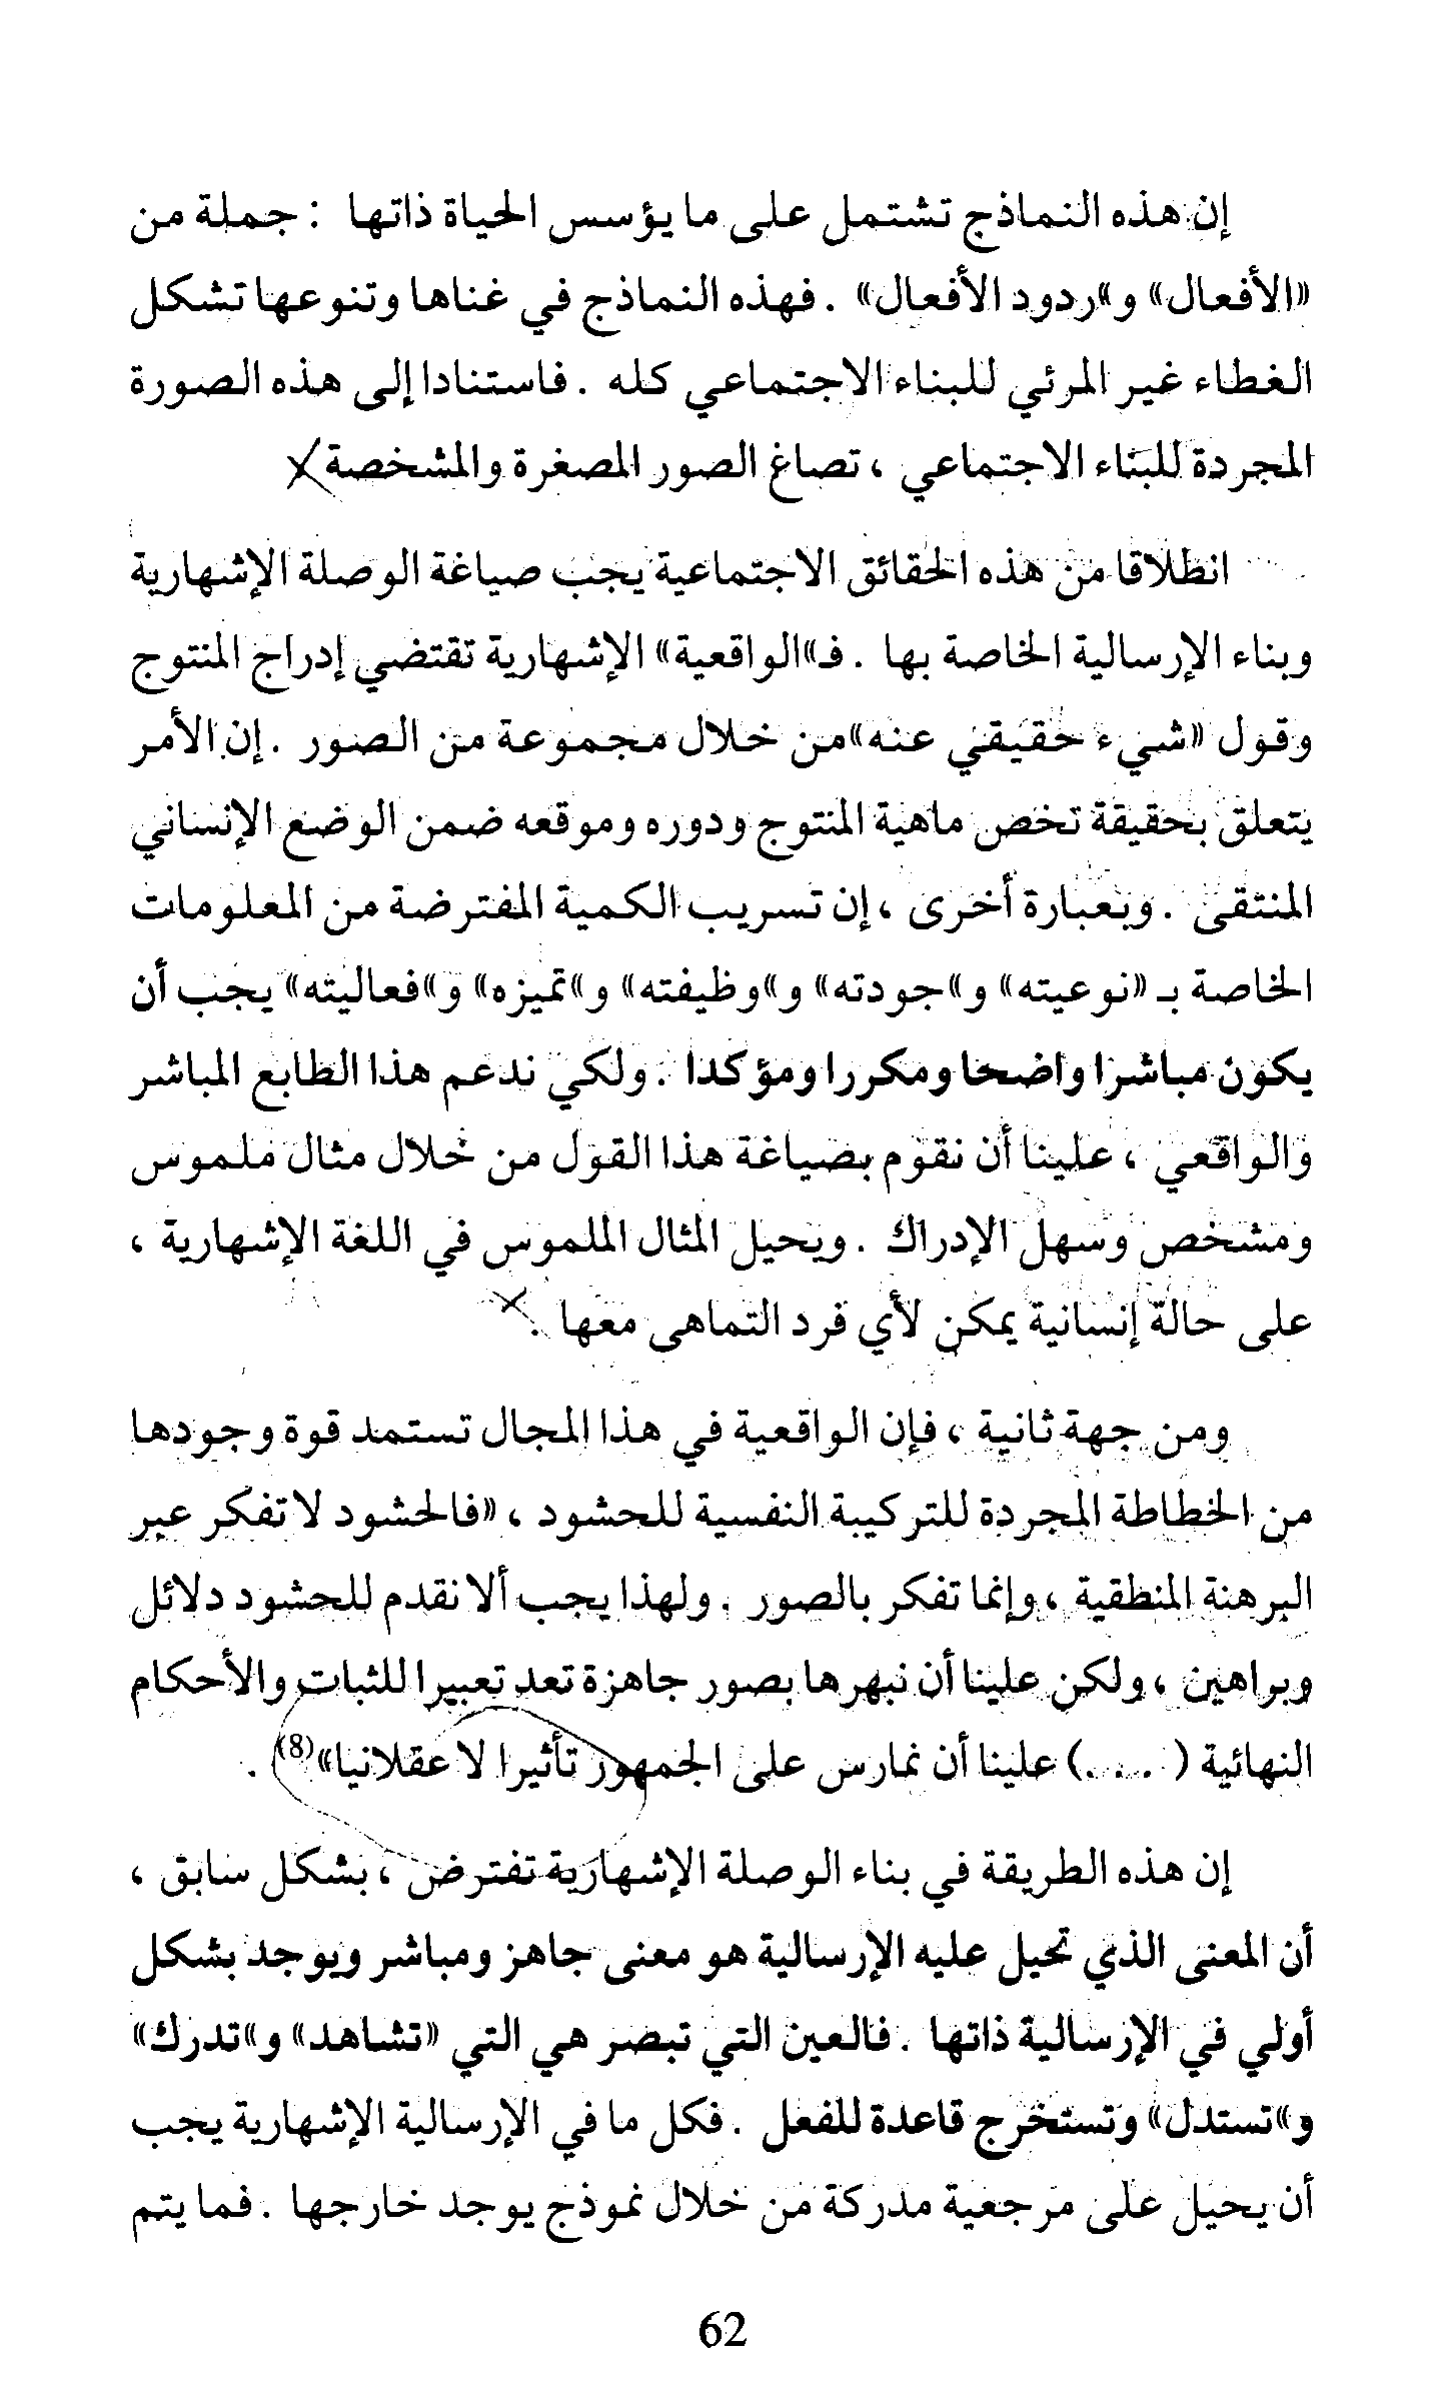 إن هذه النماذج تشتمل على ما يؤسس الحياة ذاتها : جملة من
«الأفعال» و»ردود الأفعال» . فهذه النماذج في غناها وتنوعها تشكل
الغطاء غير المرئي للبناء الاجتماعي كله . فاستنادا إلى هذه الصورة
المجردة للبناء الاجتماعي ، تصاغ الصور المصغرة والمشخصة
انطلاقا من هذه الحقائق الاجتماعية يجب صياغة الوصلة الإشهارية
وبناء الإرسالية الخاصة بها . فـ»الواقعية» الإشهارية تقتضي إدراج المنتوج
وقول «شيء حقيقي عنه»من خلال مجموعة من الصور . إن الأمر
يتعلق بحقيقة تخص ماهية المنتوج ودوره وموقعه ضمن الوضع الإنساني
المنتقى . وبعبارة أخرى ، إن تسريب الكمية المفترضة من المعلومات
الخاصة بـ «نوعيته» و»جودته» و»وظيفته» و»تميزه» و»فعاليته» يجب أن
يكون مباشرا واضحا ومكررا ومؤكدا . ولكي ندعم هذا الطابع المباشر
والواقعي ، علينا أن نقوم بصياغة هذا القول من خلال مثال ملموس
ومشخص وسهل الإدراك . ويحيل المثال الملموس في اللغة الإشهارية ،
على حالة إنسانية يمكن لأي فرد التماهى معها .
ومن جهة ثانية ، فإن الواقعية في هذا المجال تستمد قوة وجودها
من الخطاطة المجردة للتركيبة النفسية للحشود ، «فالحشود لا تفكر عبر
البرهنة المنطقية ، وإنما تفكر بالصور . ولهذا يجب ألا نقدم للحشود دلائل
وبراهين ، ولكن علينا أن نبهرها بصور جاهزة تعد تعبيرا للثبات والأحكام
النهائية ( . . . ) علينا أن نمارس على الجمهور تأثيرا لا عقلانيا»(8) .
إن هذه الطريقة في بناء الوصلة الإشهارية تفترض ، بشكل سابق ،
أن المعنى الذي تحيل عليه الإرسالية هو معنى جاهز ومباشر ويوجد بشكل
أولي في الإرسالية ذاتها . فالعين التي تبصر هي التي «تشاهد» و»تدرك»
و»تستدل» وتستخرج قاعدة للفعل . فكل ما في الإرسالية الإشهارية يجب
أن يحيل على مرجعية مدركة من خلال نموذج يوجد خارجها . فما يتم
62